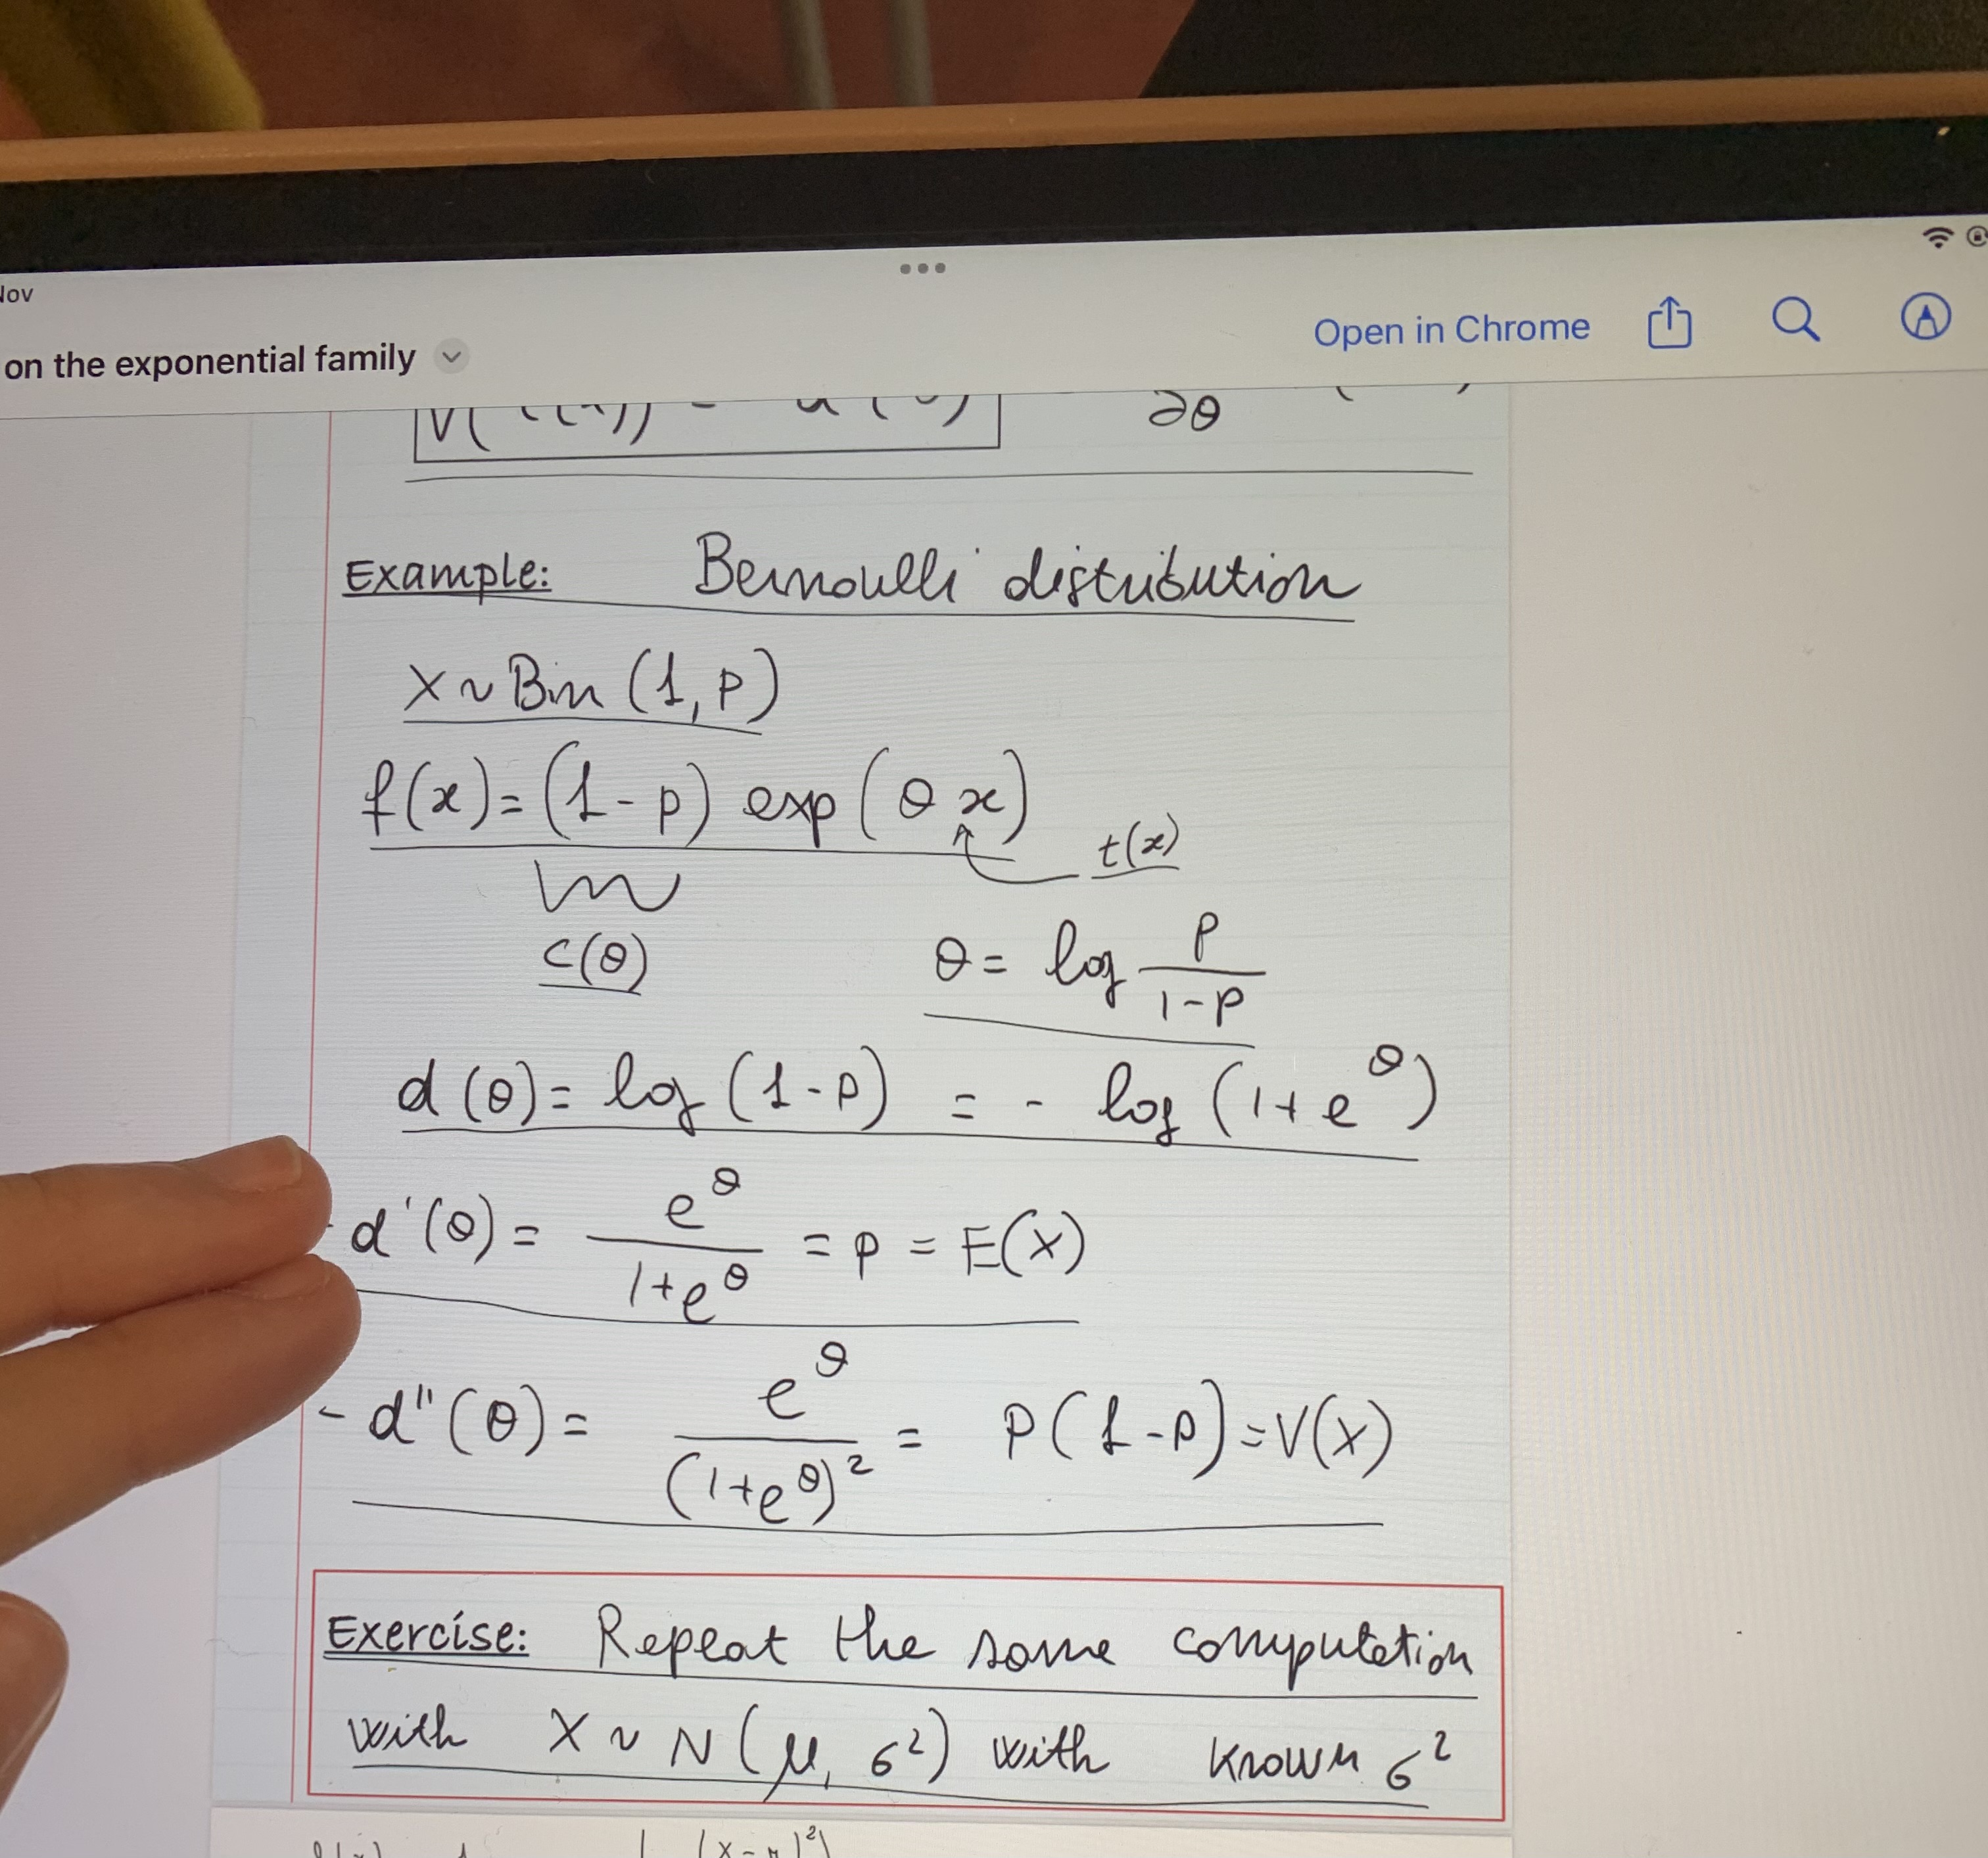 on the exponential family
Open in Chrome
∂θ
Example: Bernoulli distribution
X ~ Bin (1, p)
f(x) = (1-p) exp (θ x)
t(x)
c(θ)
θ = log p/(1-p)
d(θ) = log (1-p) = - log (1+e^θ)
- d'(θ) = e^θ/(1+e^θ) = p = E(X)
- d''(θ) = e^θ/(1+e^θ)² = p(1-p) = V(X)
Exercise: Repeat the same computation
with X ~ N(μ, σ²) with known σ²